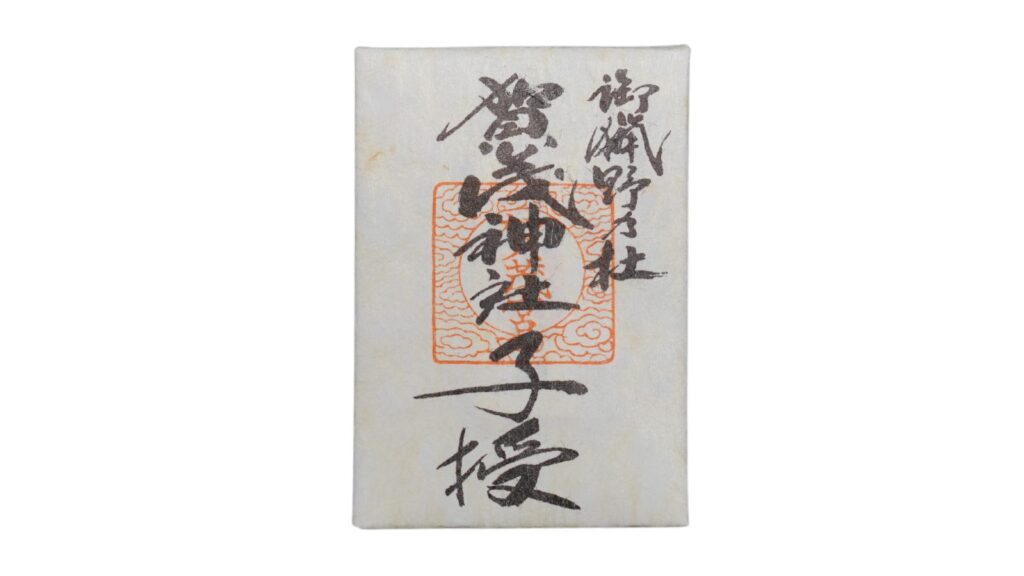 御猟野乃杜
賀茂神社
子授